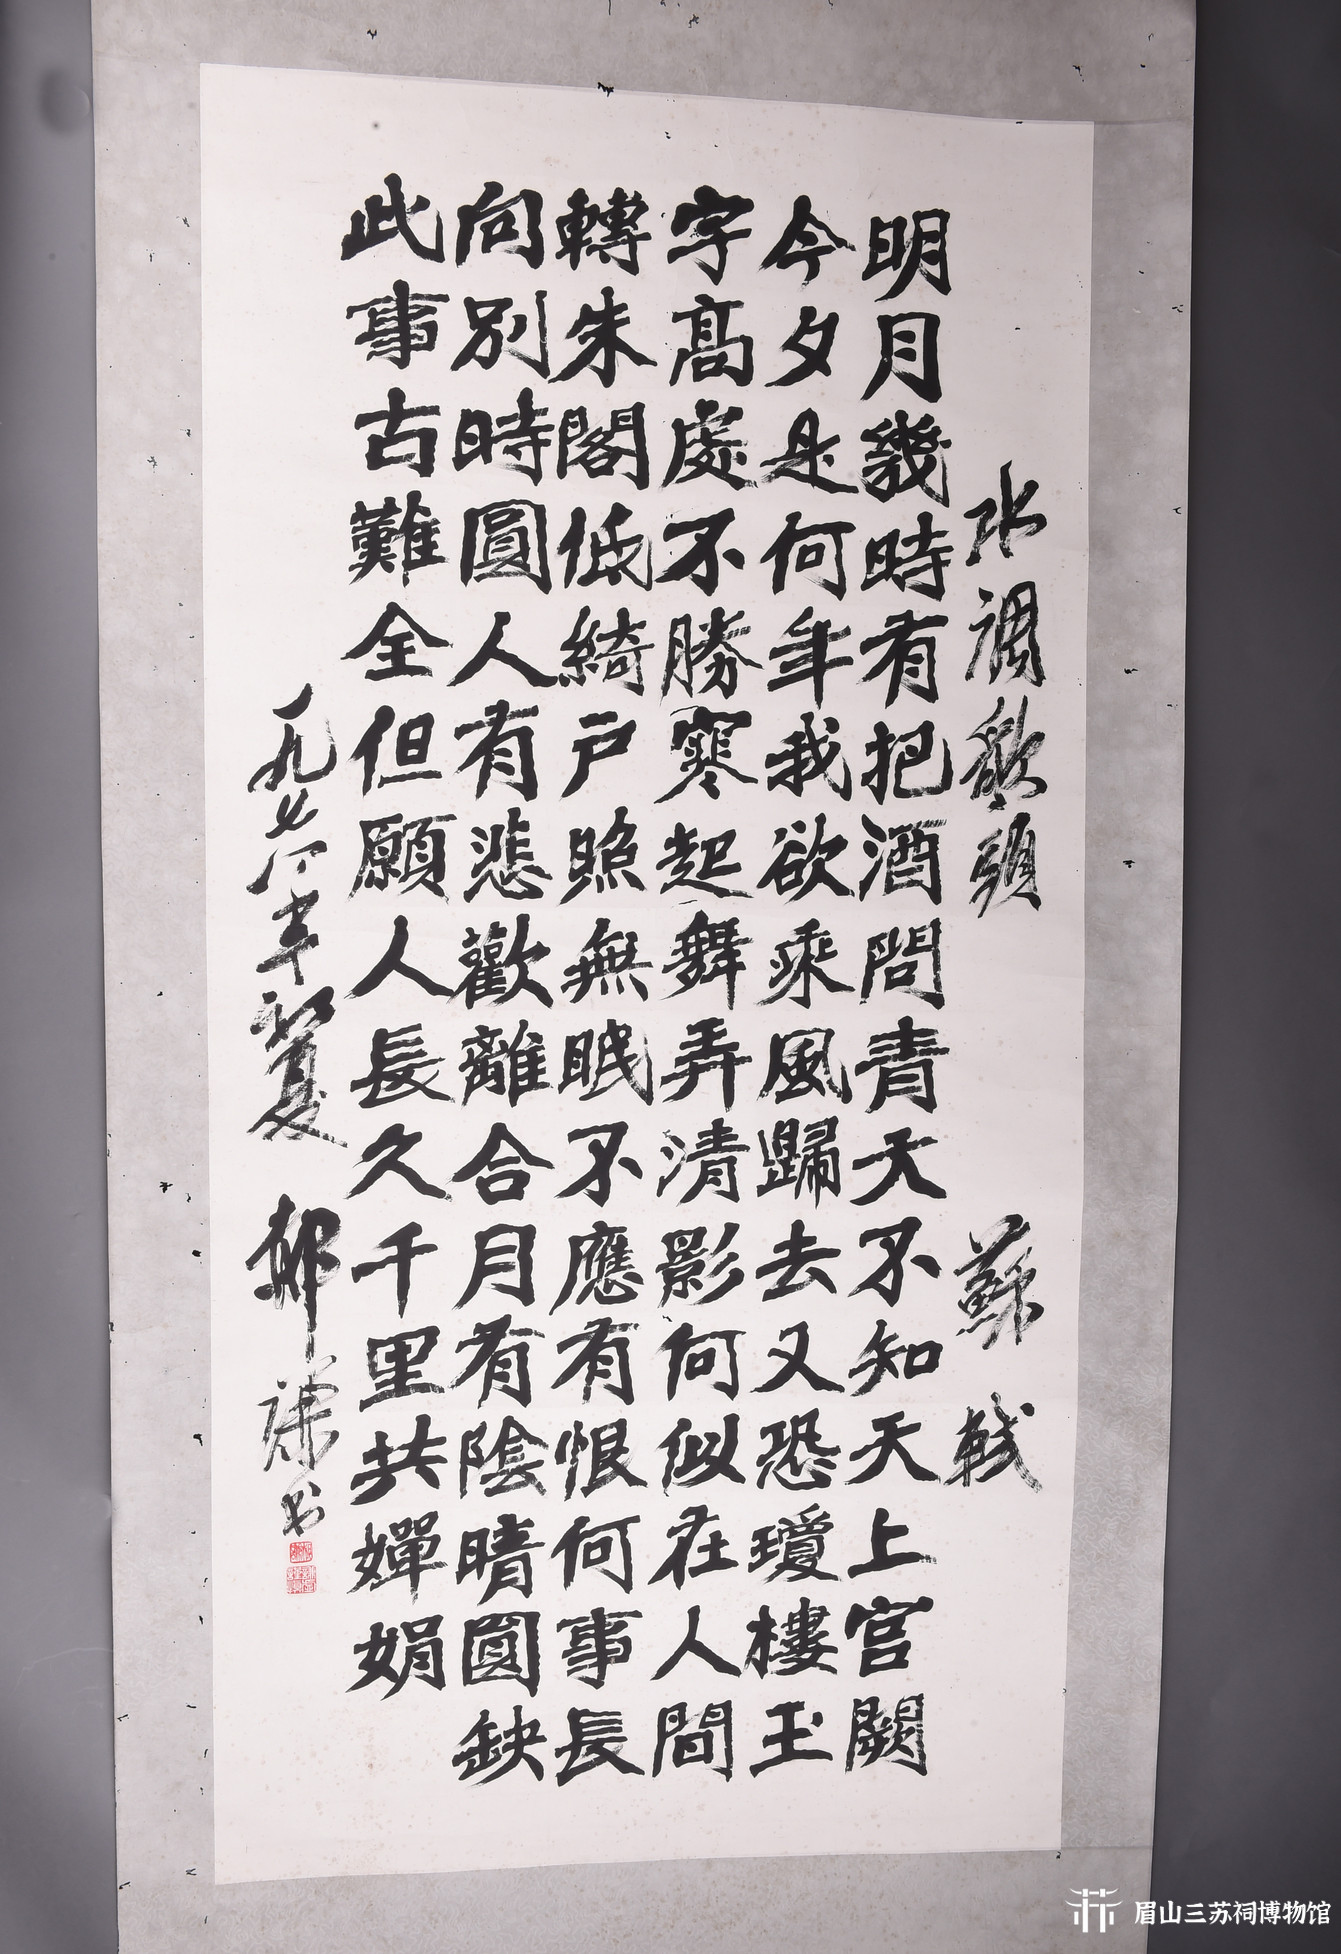 水調歌頭 蘇軾
明月幾時有把酒問青天不知天上宮闕
今夕是何年我欲乘風歸去又恐瓊樓玉
宇高處不勝寒起舞弄清影何似在人間
轉朱閣低綺戶照無眠不應有恨何事長
向別時圓人有悲歡離合月有陰晴圓缺
此事古難全但願人長久千里共嬋娟
一九七八年初夏 郝謙书
眉山三苏祠博物馆